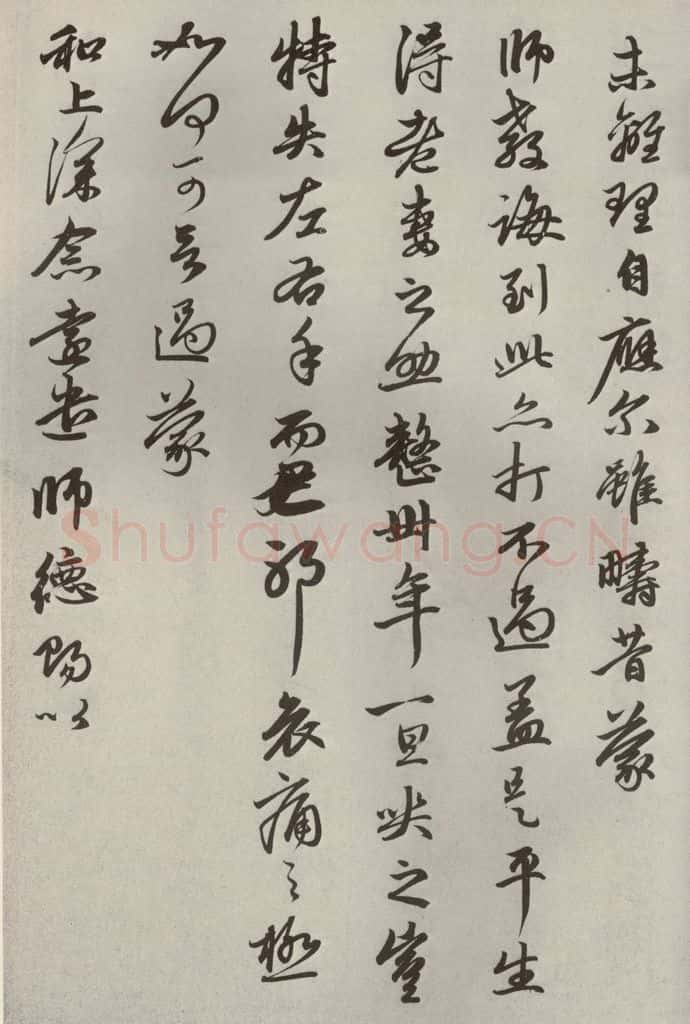 未離理自應尔雖疇昔蒙
師教誨到此亦打不過蓋是平生
得老妻之助整卅年一旦哭之豈
特失左右手而已耶哀痛之極
如何可言過蒙
和上深念遠遣師德賜以
Shufawang.CN